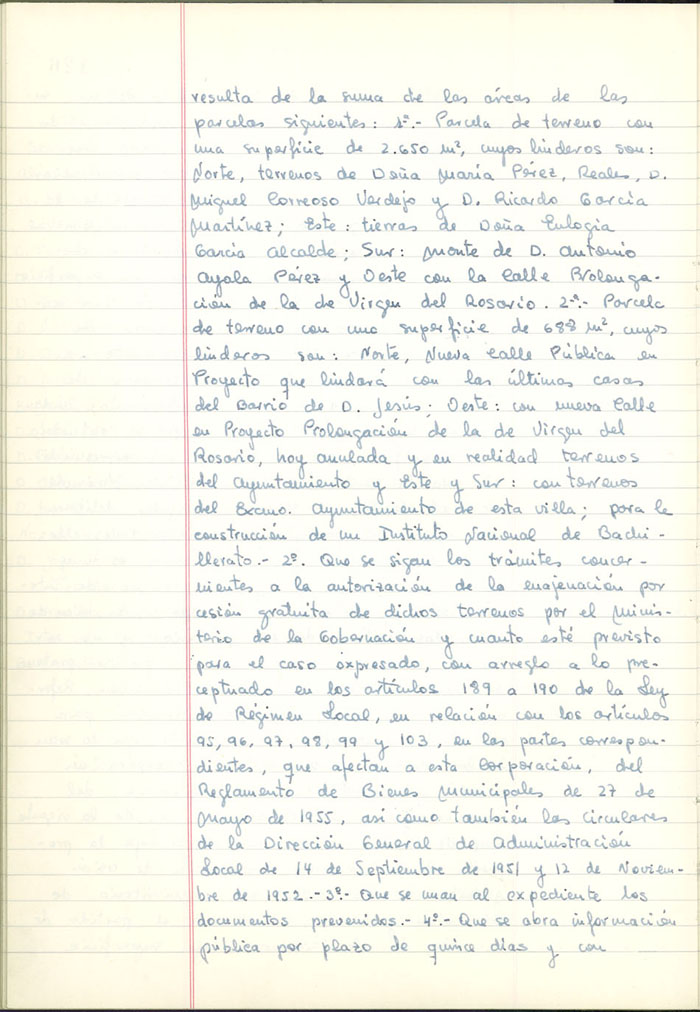 resulta de la suma de las áreas de las
parcelas siguientes: 1ª.- Parcela de terreno con
una superficie de 2.650 m², cuyos linderos son:
Norte, terrenos de Doña María Pérez, Reales, D.
Miguel Correoso Verdejo y D. Ricardo García
Martínez; Este: tierras de Doña Eulogia
García Alcalde; Sur: Monte de D. Antonio
Ayala Pérez y Oeste con la Calle Prolonga-
ción de la de Virgen del Rosario. 2ª.- Parcela
de terreno con una superficie de 688 m², cuyos
linderos son: Norte, Nueva Calle Pública en
Proyecto que lindará con las últimas casas
del Barrio de D. Jesús; Oeste: con nueva Calle
en Proyecto Prolongación de la de Virgen del
Rosario, hoy anulada y en realidad terrenos
del Ayuntamiento y Este y Sur: con terrenos
del Excmo. Ayuntamiento de esta villa; para la
construcción de un Instituto Nacional de Bachi-
llerato.- 2º. Que se sigan los trámites concer-
nientes a la autorización de la enajenación por
cesión gratuita de dichos terrenos por el Minis-
terio de la Gobernación y cuanto esté previsto
para el caso expresado, con arreglo a lo pre-
ceptuado en los artículos 189 a 190 de la Ley
de Régimen Local, en relación con los artículos
95, 96, 97, 98, 99 y 103, en las partes correspon-
dientes, que afectan a esta Corporación, del
Reglamento de Bienes Municipales de 27 de
Mayo de 1955, así como también las Circulares
de la Dirección General de Administración
Local de 14 de Septiembre de 1951 y 12 de Noviem-
bre de 1952.- 3º.- Que se unan al expediente los
documentos prevenidos.- 4º.- Que se abra información
pública por plazo de quince días y con